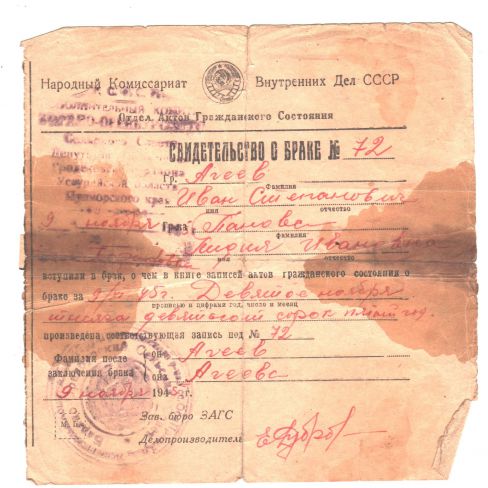 Народный Комиссариат Внутренних Дел СССР
Отдел Актов Гражданского Состояния
СВИДЕТЕЛЬСТВО О БРАКЕ № 72
Гр. Агеев
Фамилия
Иван Степанович
имя отчество
9 ноября Гр-ка Панова
фамилия
Лидия Ивановна
имя отчество
вступили в брак, о чем в книге записей актов гражданского состояния о
браке за 9/XI 45г Девятое ноября
прописью и цифрами год, число и месяц
тысяча девятьсот сорок пятый год
произведена соответствующая запись под № 72
Фамилия после он Агеев
заключения брака она Агеева
9 ноября 1945 г.
М. П.
Зав. бюро ЗАГС
Делопроизводитель